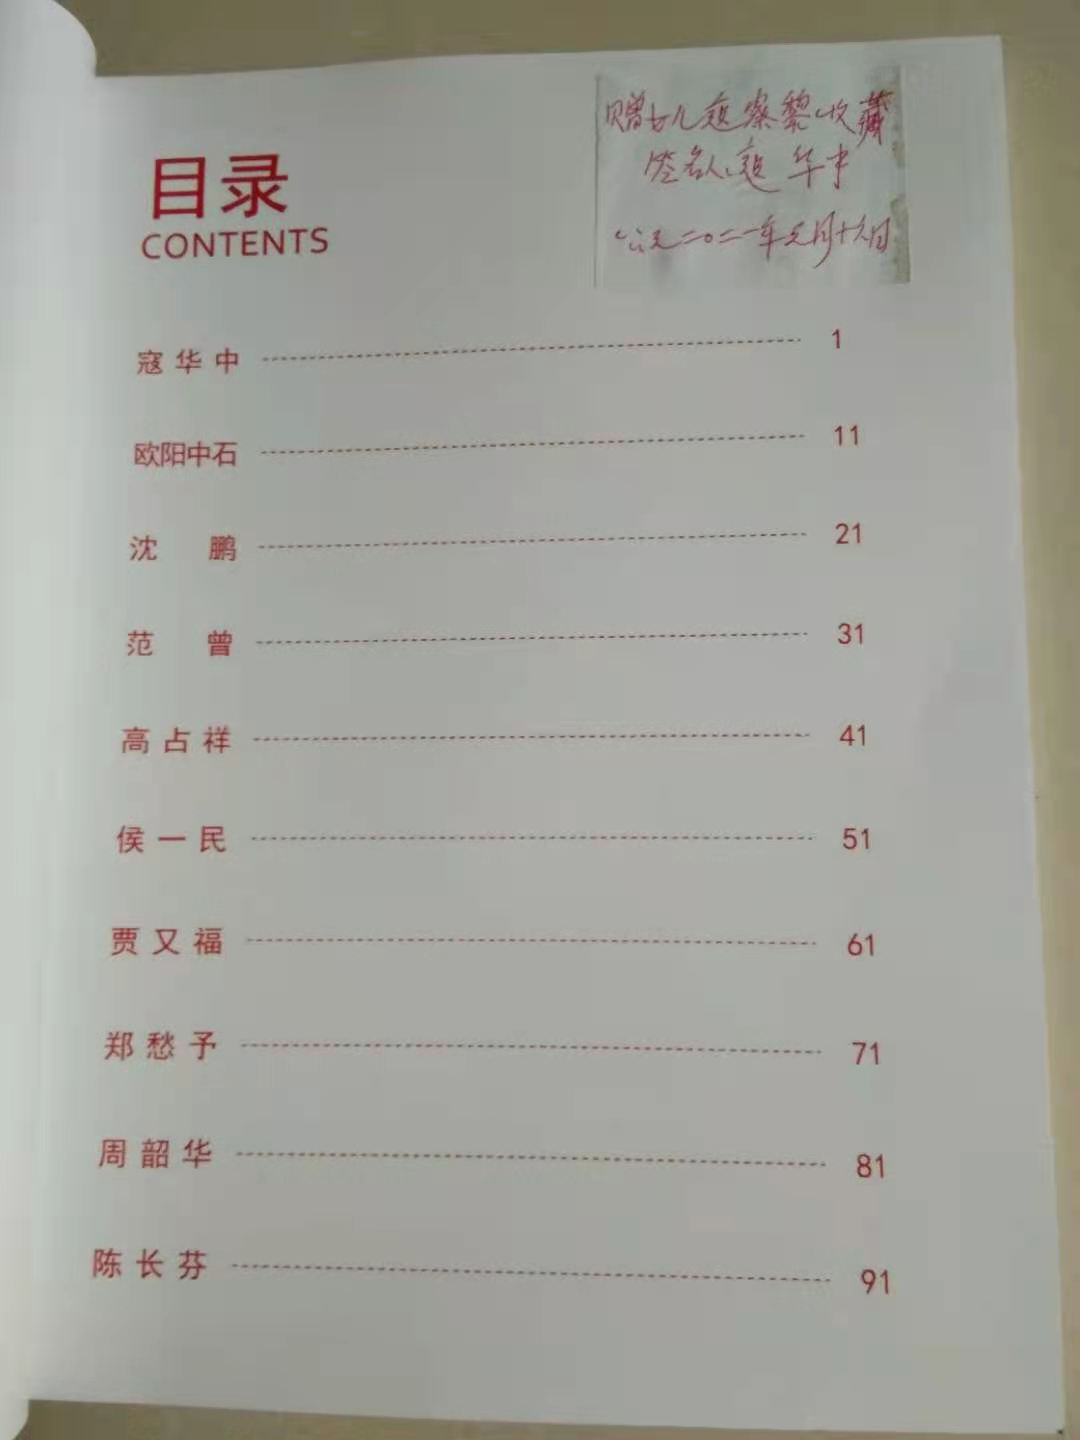 赠女儿寇寨黎收藏
签名人:寇华中
公元二〇二一年元月十六日
目录
CONTENTS
寇华中 1
欧阳中石 11
沈鹏 21
范曾 31
高占祥 41
侯一民 51
贾又福 61
郑愁予 71
周韶华 81
陈长芬 91